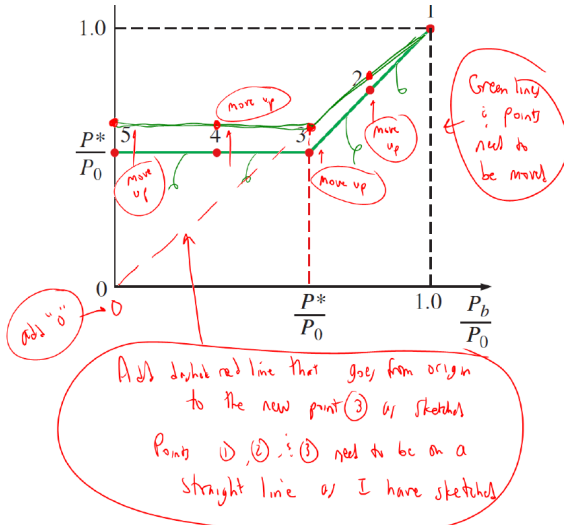 1.0
2
move up
5
4
3
P*
P0
move up
move up
move up
Green line
& points
need to
be moved
0
0
add "0"
P*
P0
1.0
Pb
P0
Add dashed red line that goes from origin
to the new point 3 as sketched
Points 1, 2, & 3 need to be on a
straight line as I have sketched